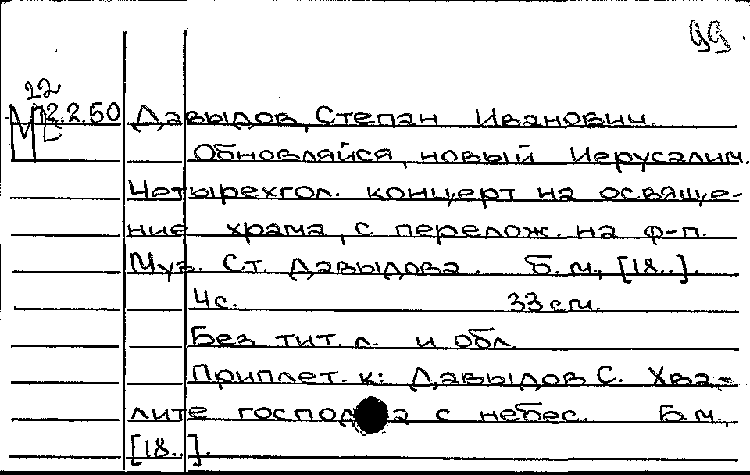 99
22
12.2.50 Давыдов, Степан Иванович.
Обновляйся, новый Иерусалим.
Четырехгол. концерт на освяще-
ние храма, с перелож. на ф-п.
Муз. Ст. Давыдова. Б.м., [18..].
4с. 33 см.
Без тит. л. и обл.
Приплет. к: Давыдов С. Хва-
лите господа с небес. Б.м.,
[18..].